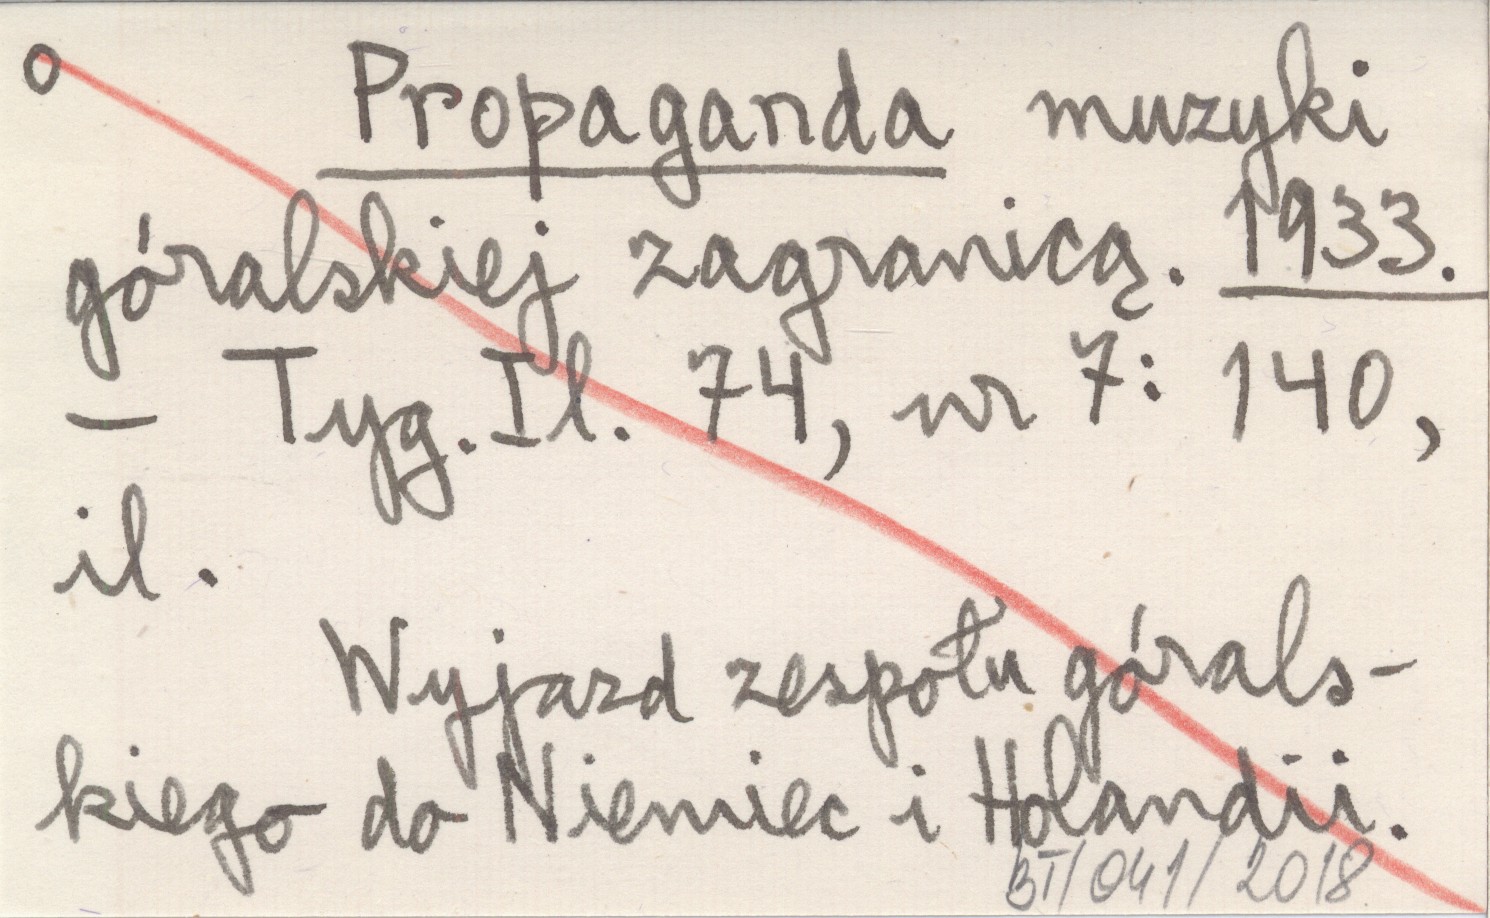 o Propaganda muzyki
góralskiej zagranicą. 1933.
– Tyg. Il. 74, nr 7: 140,
il.
Wyjazd zespołu górals-
kiego do Niemiec i Holandii.
BT/041/2018